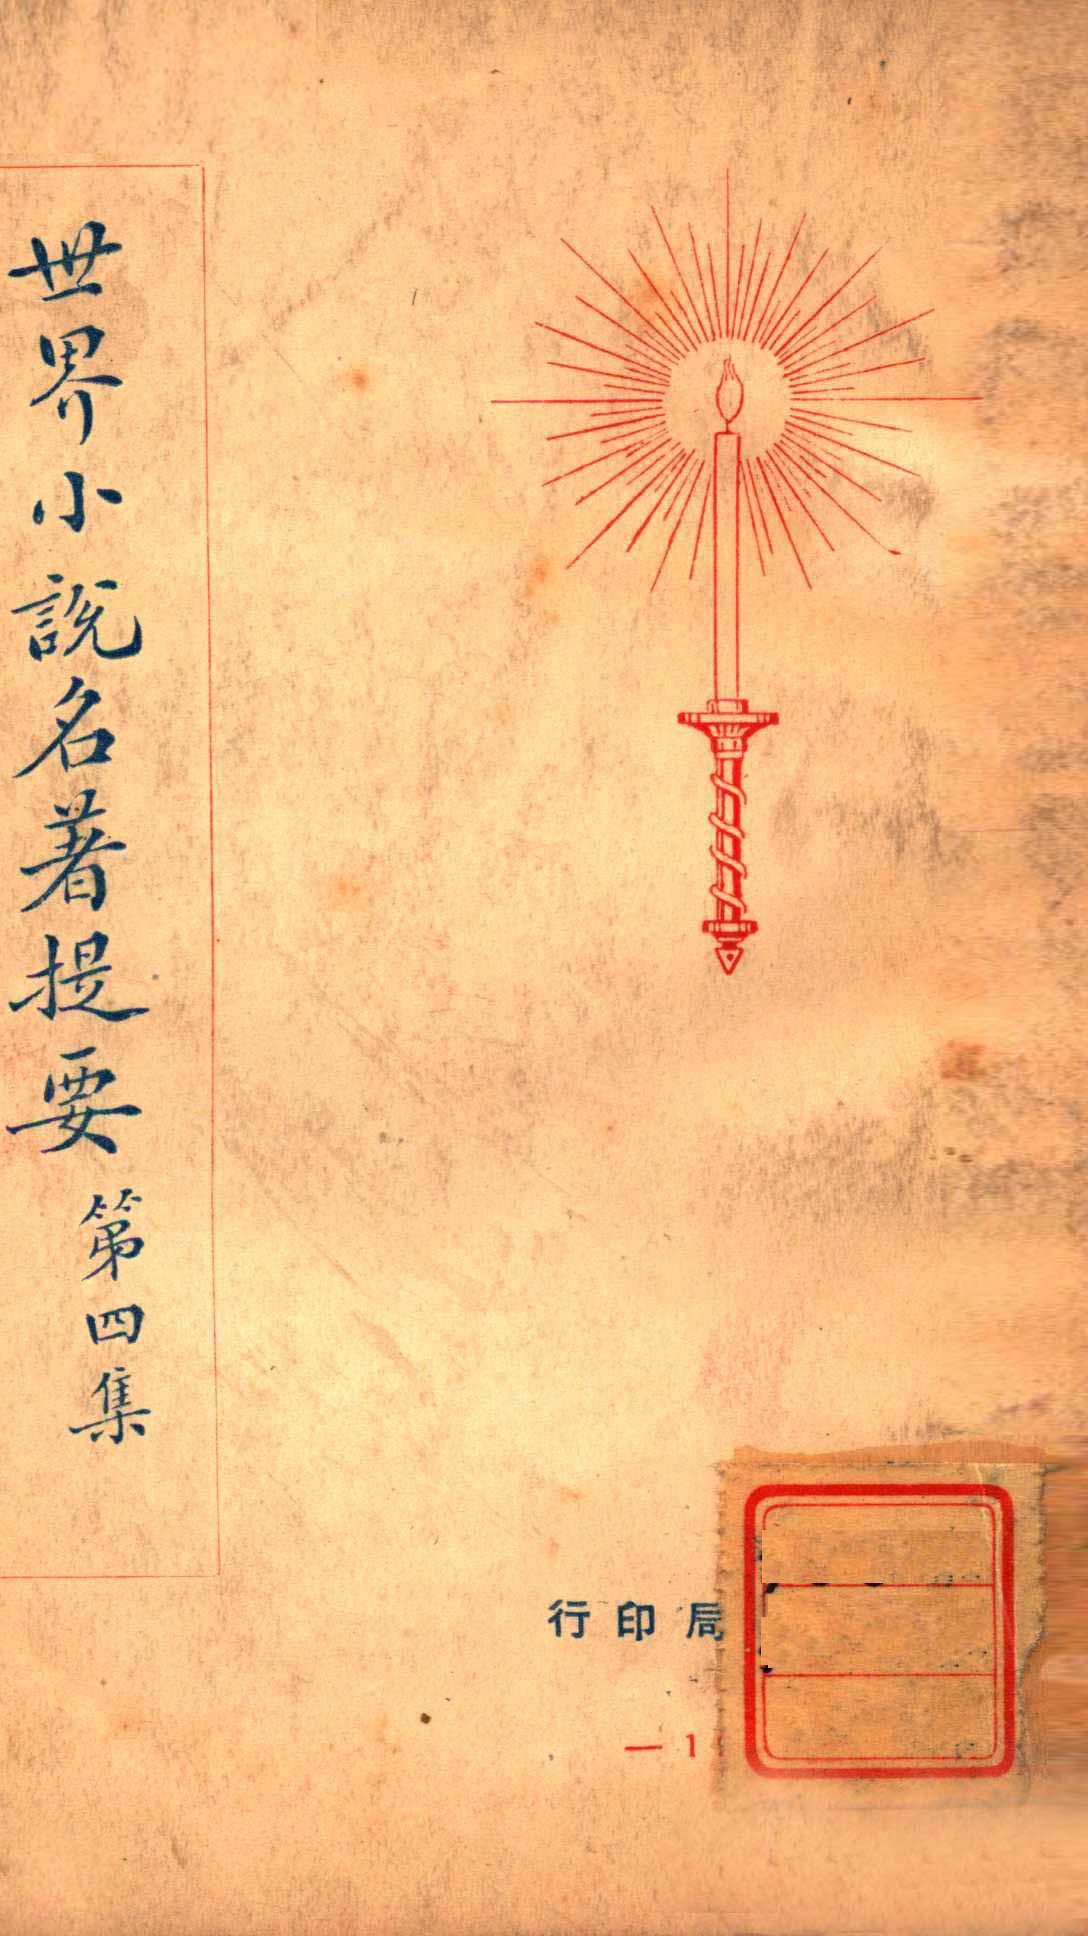 世界小說名著提要
第四集
行印局
一1